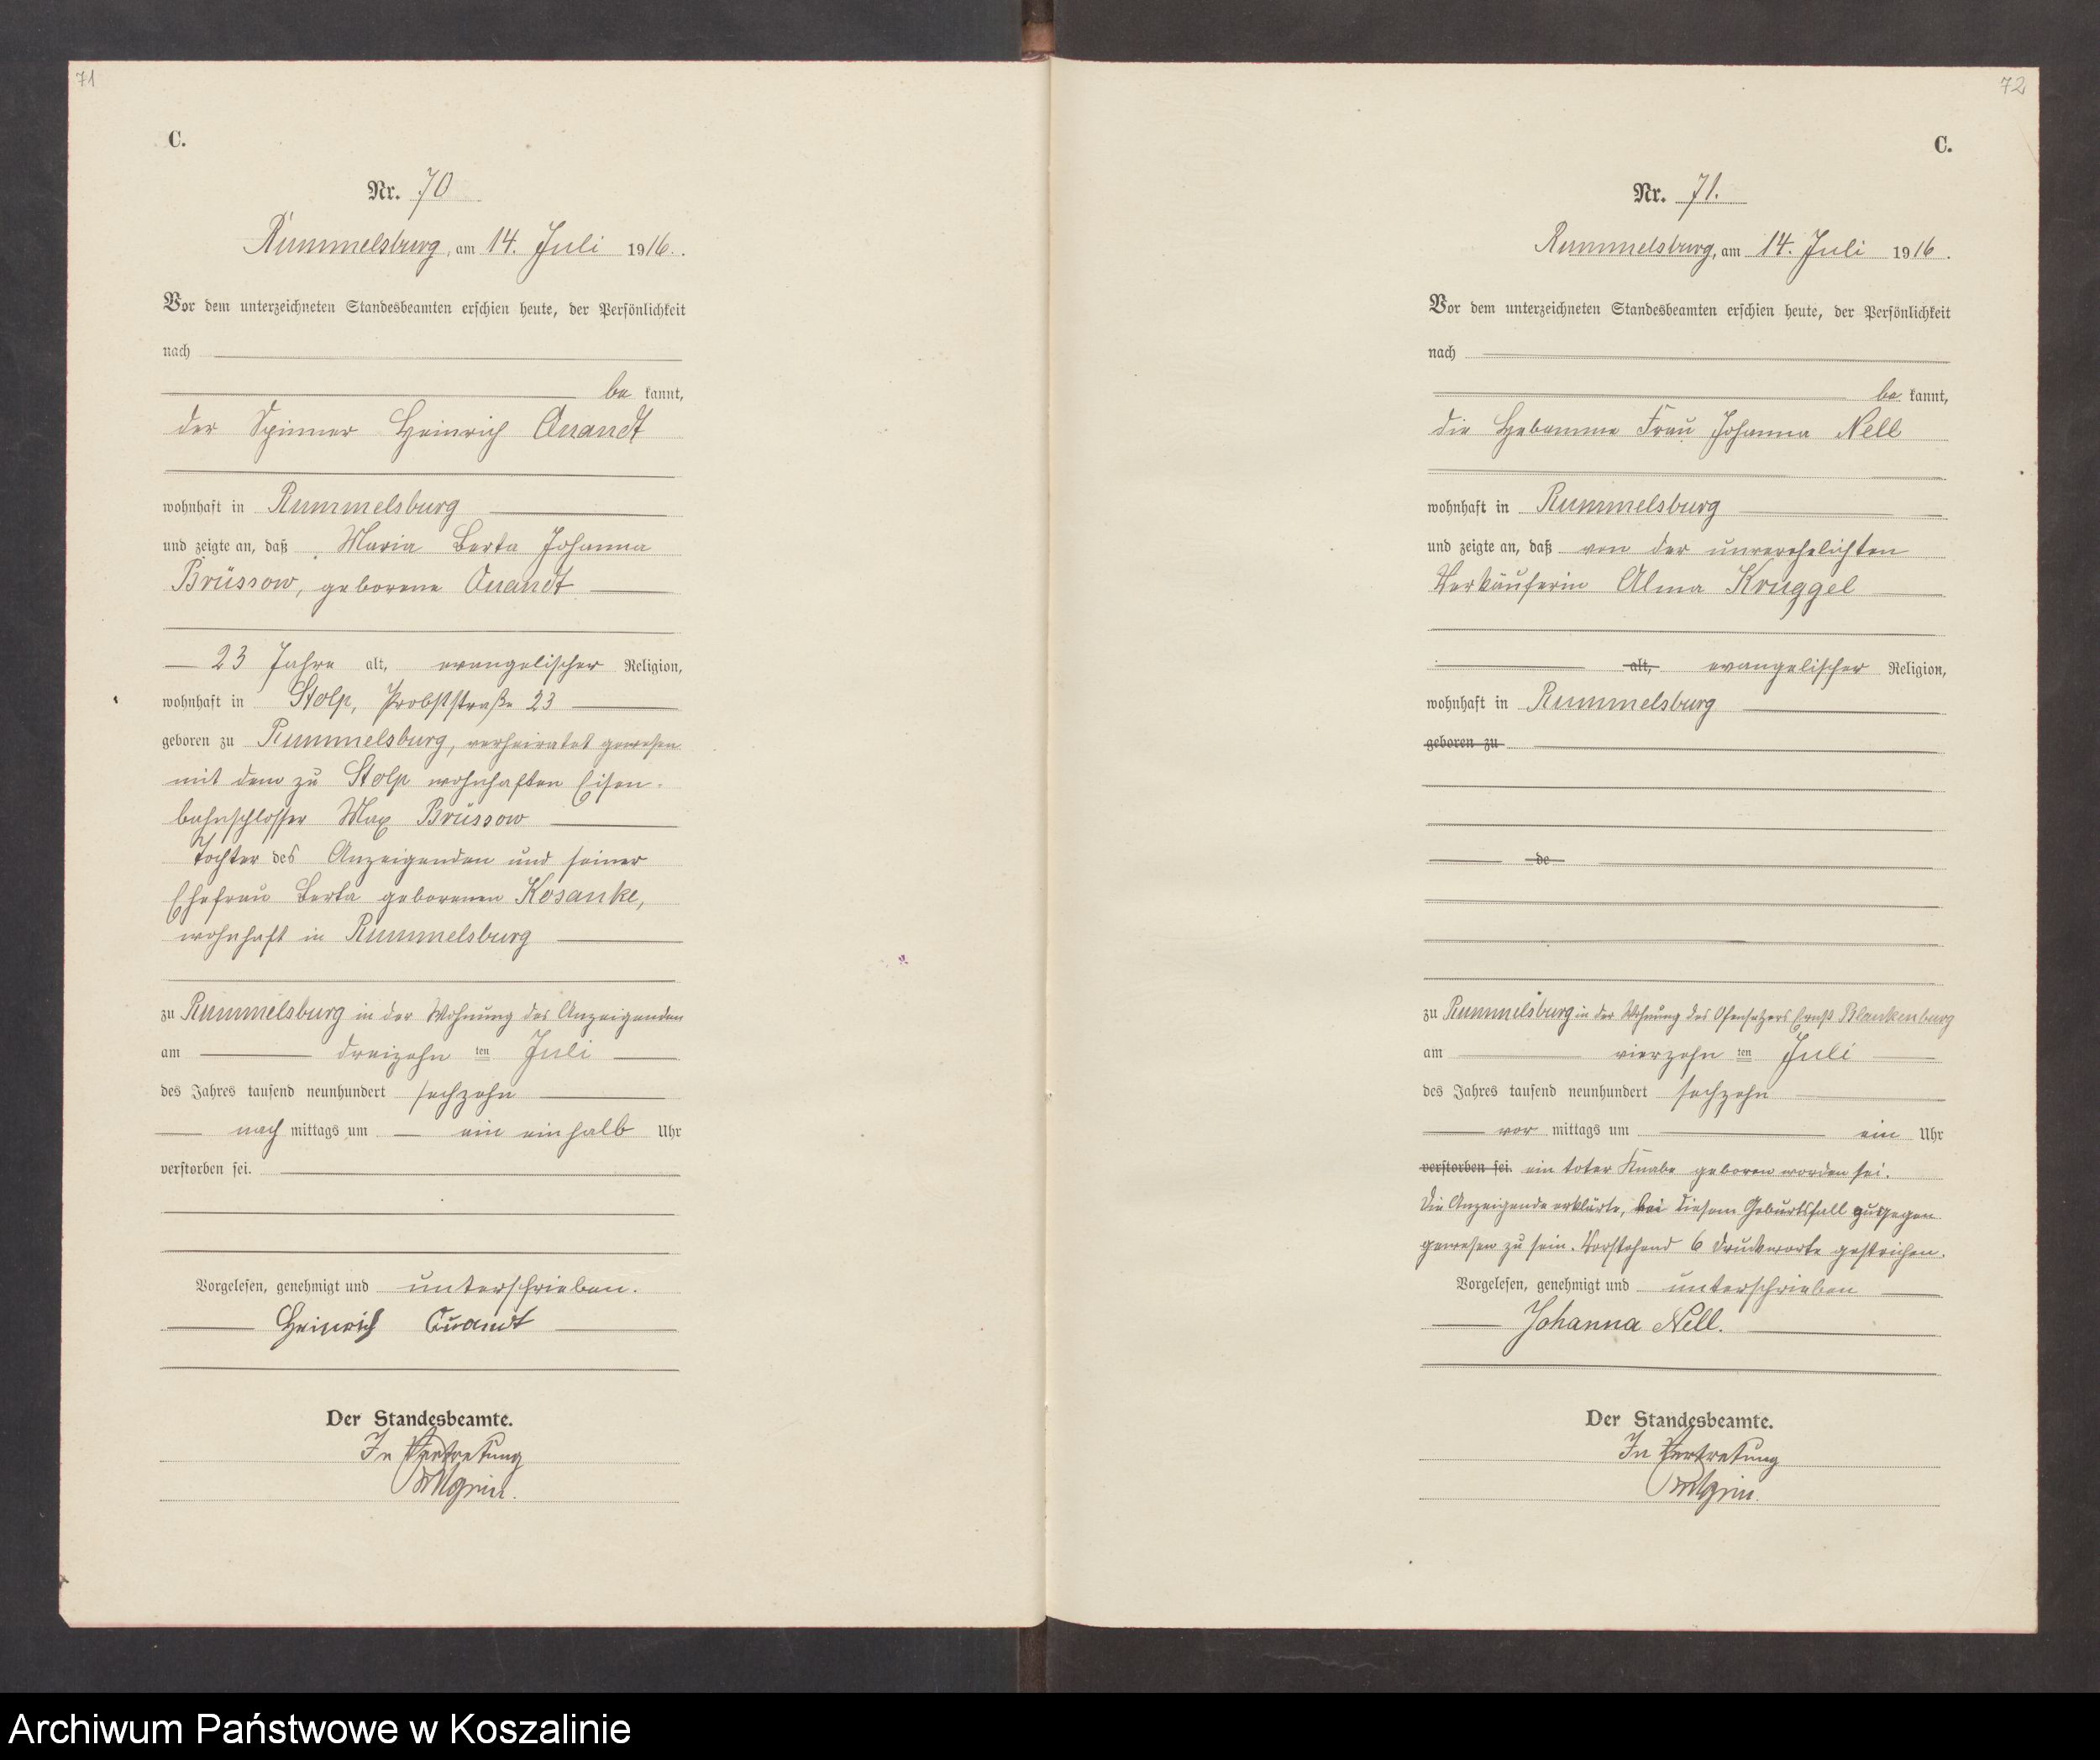 71
C.
Nr. 70
Rummelsburg, am 14. Juli 1916.
Vor dem unterzeichneten Standesbeamten erschien heute, der Persönlichkeit
nach
be kannt,
der Spinner Heinrich Quandt
wohnhaft in Rummelsburg
und zeigte an, daß Maria Berta Johanna
Brüssow, geborene Quandt
23 Jahre alt, evangelischer Religion,
wohnhaft in Stolp, Probststraße 23
geboren zu Rummelsburg, verheiratet gewesen
mit dem zu Stolp wohnhaften Eisen-
bahnschlosser Max Brüssow
Tochter des Anzeigenden und seiner
Ehefrau Berta geborenen Kosanke,
wohnhaft in Rummelsburg
zu Rummelsburg in der Wohnung des Anzeigenden
am dreizehn ten Juli
des Jahres tausend neunhundert sechzehn
nach mittags um ein einhalb Uhr
verstorben sei.
Vorgelesen, genehmigt und unterschrieben.
Heinrich Quandt
Der Standesbeamte.
In Vertretung
72
C.
Nr. 71.
Rummelsburg, am 14. Juli 1916.
Vor dem unterzeichneten Standesbeamten erschien heute, der Persönlichkeit
nach
be kannt,
die Hebamme Frau Johanna Nell
wohnhaft in Rummelsburg
und zeigte an, daß von der unverehelichten
Verkäuferin Alma Kruggel
alt, evangelischer Religion,
wohnhaft in Rummelsburg
geboren zu
de
zu Rummelsburg in der Wohnung des Ofensetzers Ernst Blankenburg
am vierzehn ten Juli
des Jahres tausend neunhundert sechzehn
vor mittags um ein Uhr
verstorben sei. ein toter Knabe geboren worden sei.
Die Anzeigende erklärte, bei diesem Geburtsfall zugegen
gewesen zu sein. Vorstehend 6 Druckworte gestrichen.
Vorgelesen, genehmigt und unterschrieben
Johanna Nell.
Der Standesbeamte.
In Vertretung
Archiwum Państwowe w Koszalinie